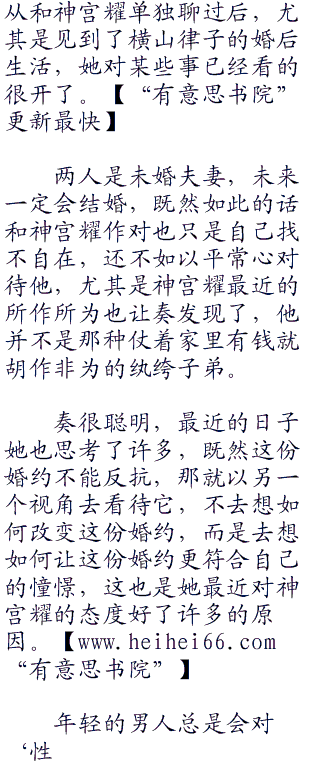 从和神宫耀单独聊过后，尤
其是见到了横山律子的婚后
生活，她对某些事已经看的
很开了。【“有意思书院”
更新最快】
两人是未婚夫妻，未来
一定会结婚，既然如此的话
和神宫耀作对也只是自己找
不自在，还不如以平常心对
待他，尤其是神宫耀最近的
所作所为也让奏发现了，他
并不是那种仗着家里有钱就
胡作非为的纨绔子弟。
奏很聪明，最近的日子
她也思考了许多，既然这份
婚约不能反抗，那就以另一
个视角去看待它，不去想如
何改变这份婚约，而是去想
如何让这份婚约更符合自己
的憧憬，这也是她最近对神
宫耀的态度好了许多的原
因。【www.heihei66.com
“有意思书院”】
年轻的男人总是会对
‘性